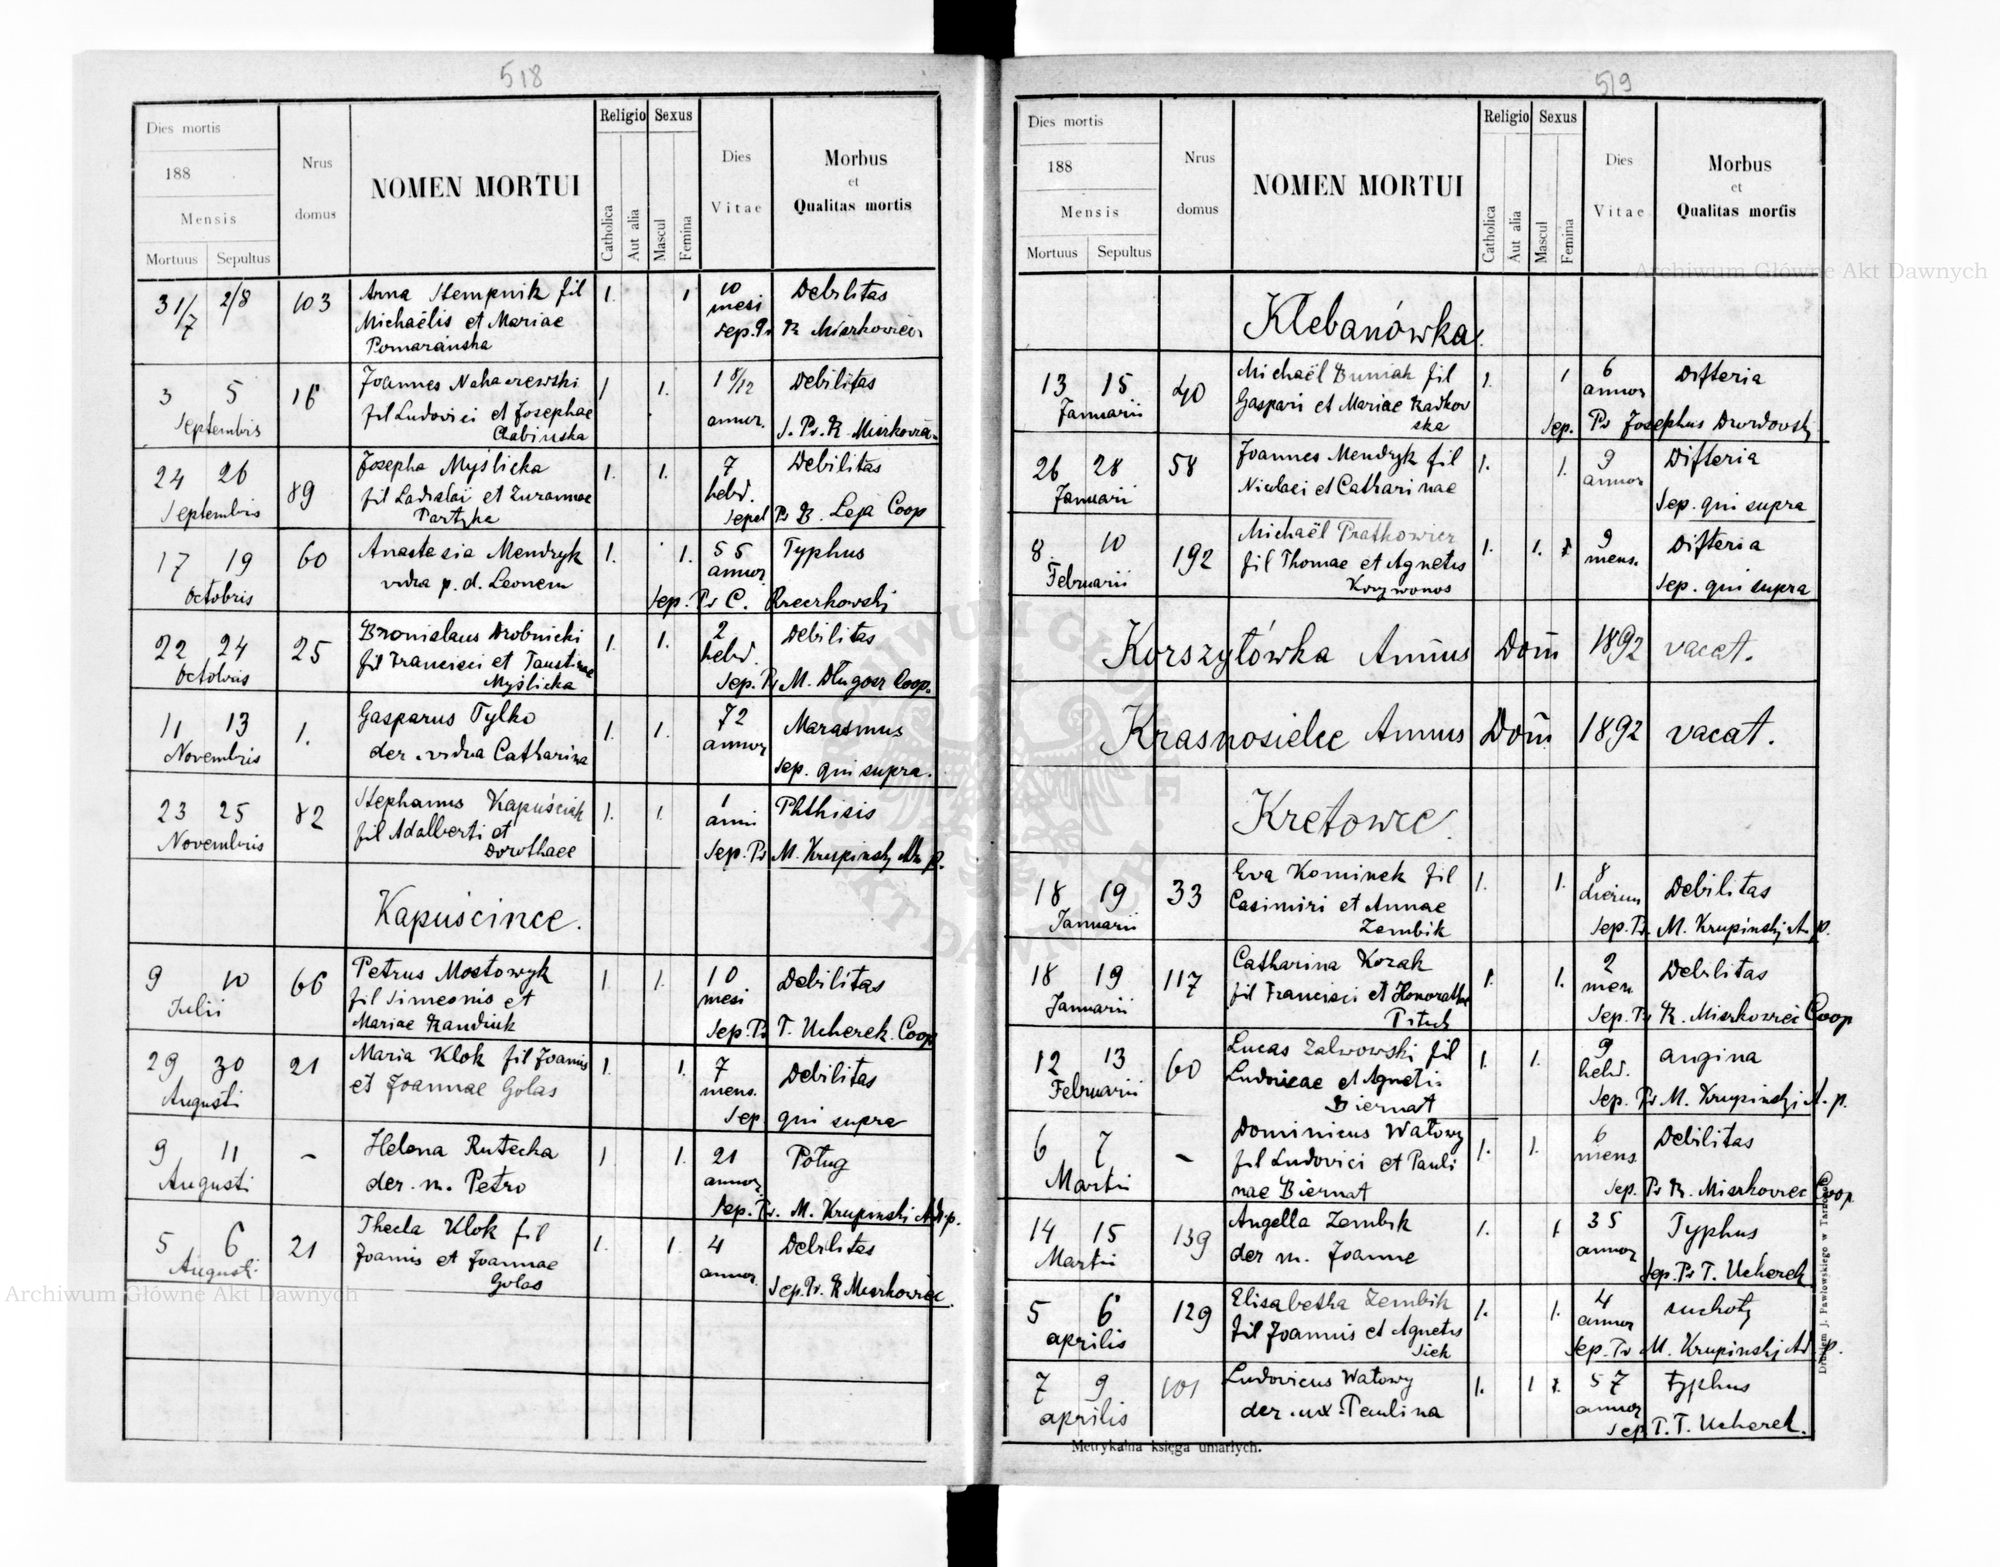 518
Dies mortis
188
Mensis
Mortuus Sepultus
Nrus
domus
NOMEN MORTUI
Religio
Catholica
Aut alia
Sexus
Mascul
Femina
Dies
Vitae
Morbus
et
Qualitas mortis
31/7 2/8 103 Anna Stempnik fil 1. 1 10 Debilitas
Michaëlis et Mariae mesi
Pomarańska sep. Pr R Mierkowiec
3 5 16 Joannes Nahaczewski 1 1. 1 8/12 Debilitas
Septembris fil Ludovici et Josephae annor. S. Pr. R. Mierkowiec
Chabinska
24 26 89 Josepha Myślicka 1. 1. 7 Debilitas
Septembris fil Ladislai et Zuzannae hebd.
Partyka Sepel Pr B. Leja Coop
17 19 60 Anastasia Mendryk 1. 1. 55 Typhus
Octobris vidua p. d. Leonem annor.
Sep. Pr C. Kreczkowski
22 24 25 Bronislaus Drobnicki 1. 1. 2 Debilitas
Octobris fil Francisci et Faustinae hebd.
Myślicka Sep. Pr M. Długosz Coop.
11 13 1. Gasparus Tylko 1. 1. 72 Marasmus
Novembris der. vidua Catharina annor
Sep. qui supra.
23 25 82 Stephanus Kapuściak 1. 1. 1 Phthisis
Novembris fil Adalberti et anni
Dorothaee Sep. Pr M. Krupinski Ad p.
Kapuścince.
9 10 66 Petrus Mostowyk 1. 1. 10 Debilitas
Julii fil Simeonis et mesi
Mariae Randiuk Sep. Pr T. Ucherek Coop
29 30 21 Maria Klok fil Joannis 1. 1. 7 Debilitas
Augusti et Joannae Golas mens.
Sep qui supra
9 11 – Helena Rutecka 1 1. 21 Poług
Augusti der. m. Petro annor.
Sep. Pr. M. Krupinski Ad p.
5 6 21 Thecla Klok fil 1. 1. 4 Debilitas
Augusti Joannis et Joannae annor.
Golas Sep. Pr. R Mierkowiec.
519
Dies mortis
188
Mensis
Mortuus Sepultus
Nrus
domus
NOMEN MORTUI
Religio
Catholica
Aut alia
Sexus
Mascul
Femina
Dies
Vitae
Morbus
et
Qualitas mortis
Klebanówka.
13 15 40 Michaël Buniak fil 1. 1 6 Difteria
Januarii Gaspari et Mariae Radkow annor
ska Sep. Pr Josephus
26 28 58 Joannes Mendryk fil 1. 1. 9 Difteria
Januarii Nicolaei et Catharinae annor
Sep. qui supra
8 10 192 Michaël Pratkowicz 1. 1. 9 Difteria
Februarii fil Thomae et Agnetis mens.
Krzywonos Sep. qui supra
Korszyłówka Annus Dom̄ 1892 vacat.
Krasnosielce Annus Dom̄ 1892 vacat.
Kretowce.
18 19 33 Eva Kominek fil 1. 1. 8 Debilitas
Januarii Casimiri et Annae dierum
Zembik Sep. Pr. M. Krupinski A. p.
18 19 117 Catharina Kozak 1. 1. 2 Debilitas
Januarii fil Francisci et Honorathae men.
Sep. Pr R. Mierkowiec Coop
12 13 60 Lucas Zalwowski fil 1. 1. 9 angina
Februarii Ludovicae et Agnetis hebd.
Biernat Sep. Pr M. Krupinski A. p.
6 7 – Dominicus Watowy 1. 1. 6 Debilitas
Martii fil Ludovici et Pauli mens
nae Biernat Sep. Pr R. Mierkowiec Coop
14 15 139 Angella Zembik 1. 1 35 Typhus
Martii der m. Joanne annor
Sep. Pr T. Ucherek
5 6 129 Elisabetha Zembik 1. 1. 4 suchoty
aprilis fil Joannis et Agnetis annor
Siek Sep. Pr M. Krupinski Ad. p.
7 9 101 Ludovicus Watowy 1. 1 57 typhus
aprilis der. ux. Paulina annor
Sep T. T. Ucherek.
Metrykalna księga umarłych.
Drukiem J. Pawłowskiego w Tarnopolu
Archiwum Główne Akt Dawnych
Archiwum Główne Akt Dawnych
ARCHIWUM GŁÓWNE AKT DAWNYCH